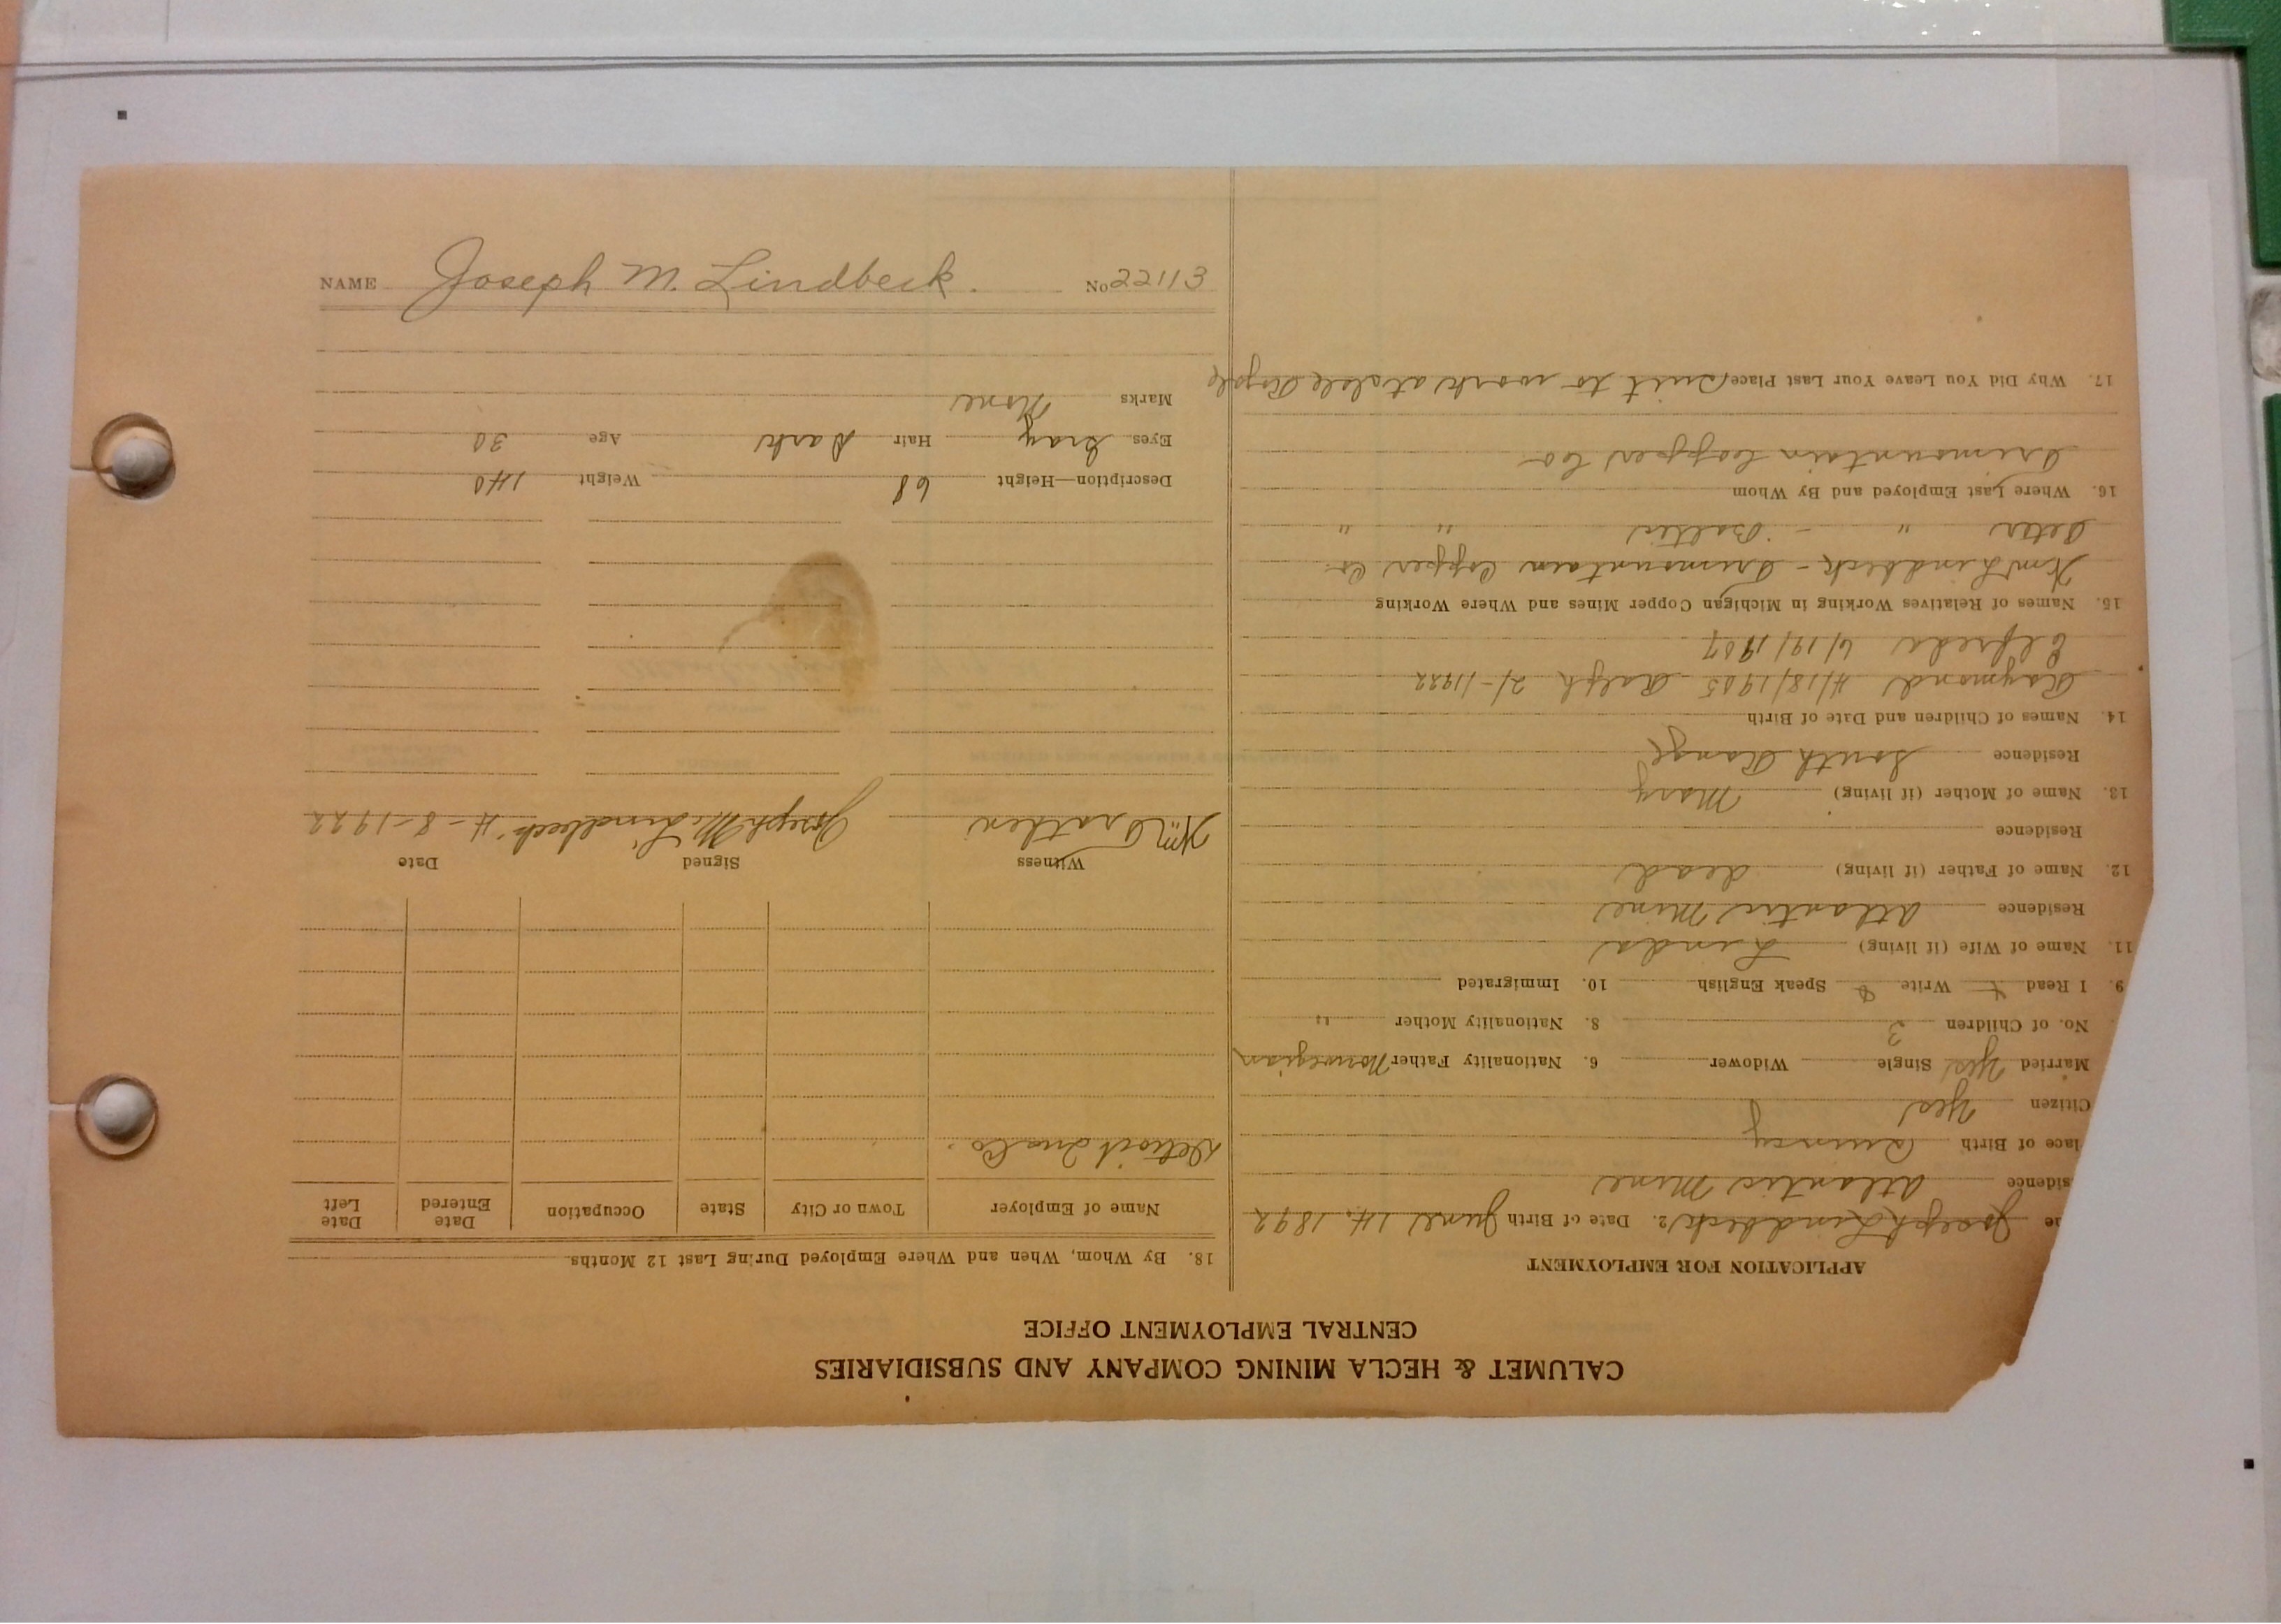 CALUMET & HECLA MINING COMPANY AND SUBSIDIARIES
CENTRAL EMPLOYMENT OFFICE
APPLICATION FOR EMPLOYMENT
me Joseph Lindbeck 2. Date of Birth June 14. 1892
sidence Atlantic Mine
lace of Birth Quincy
Citizen Yes
Married Yes Single Widower 6. Nationality Father Norwegian
No. of Children 3 8. Nationality Mother "
9. I Read Write Speak English 10. Immigrated
11. Name of Wife (if living) Linda
Residence Atlantic Mine
12. Name of Father (if living) dead
Residence
13. Name of Mother (if living) Mary
Residence South Range
14. Names of Children and Date of Birth
Raymond 4/18/1905 Ralph 2/-/1922
Elfreda 6/19/1907
15. Names of Relatives Working in Michigan Copper Mines and Where Working
Wm Lindbeck - Trimountain Copper Co.
Peter " - Baltic " "
16. Where Last Employed and By Whom
Trimountain Copper Co
17. Why Did You Leave Your Last Place Quit to work at Isle Royale
18. By Whom, When and Where Employed During Last 12 Months.
Name of Employer Town or City State Occupation Date Entered Date Left
Detroit Co.
Witness Signed Date
Wm Joseph M. Lindbeck 4-8-1922
Description—Height 68 Weight 140
Eyes Gray Hair Dark Age 30
Marks None
NAME Joseph M. Lindbeck. No 22113